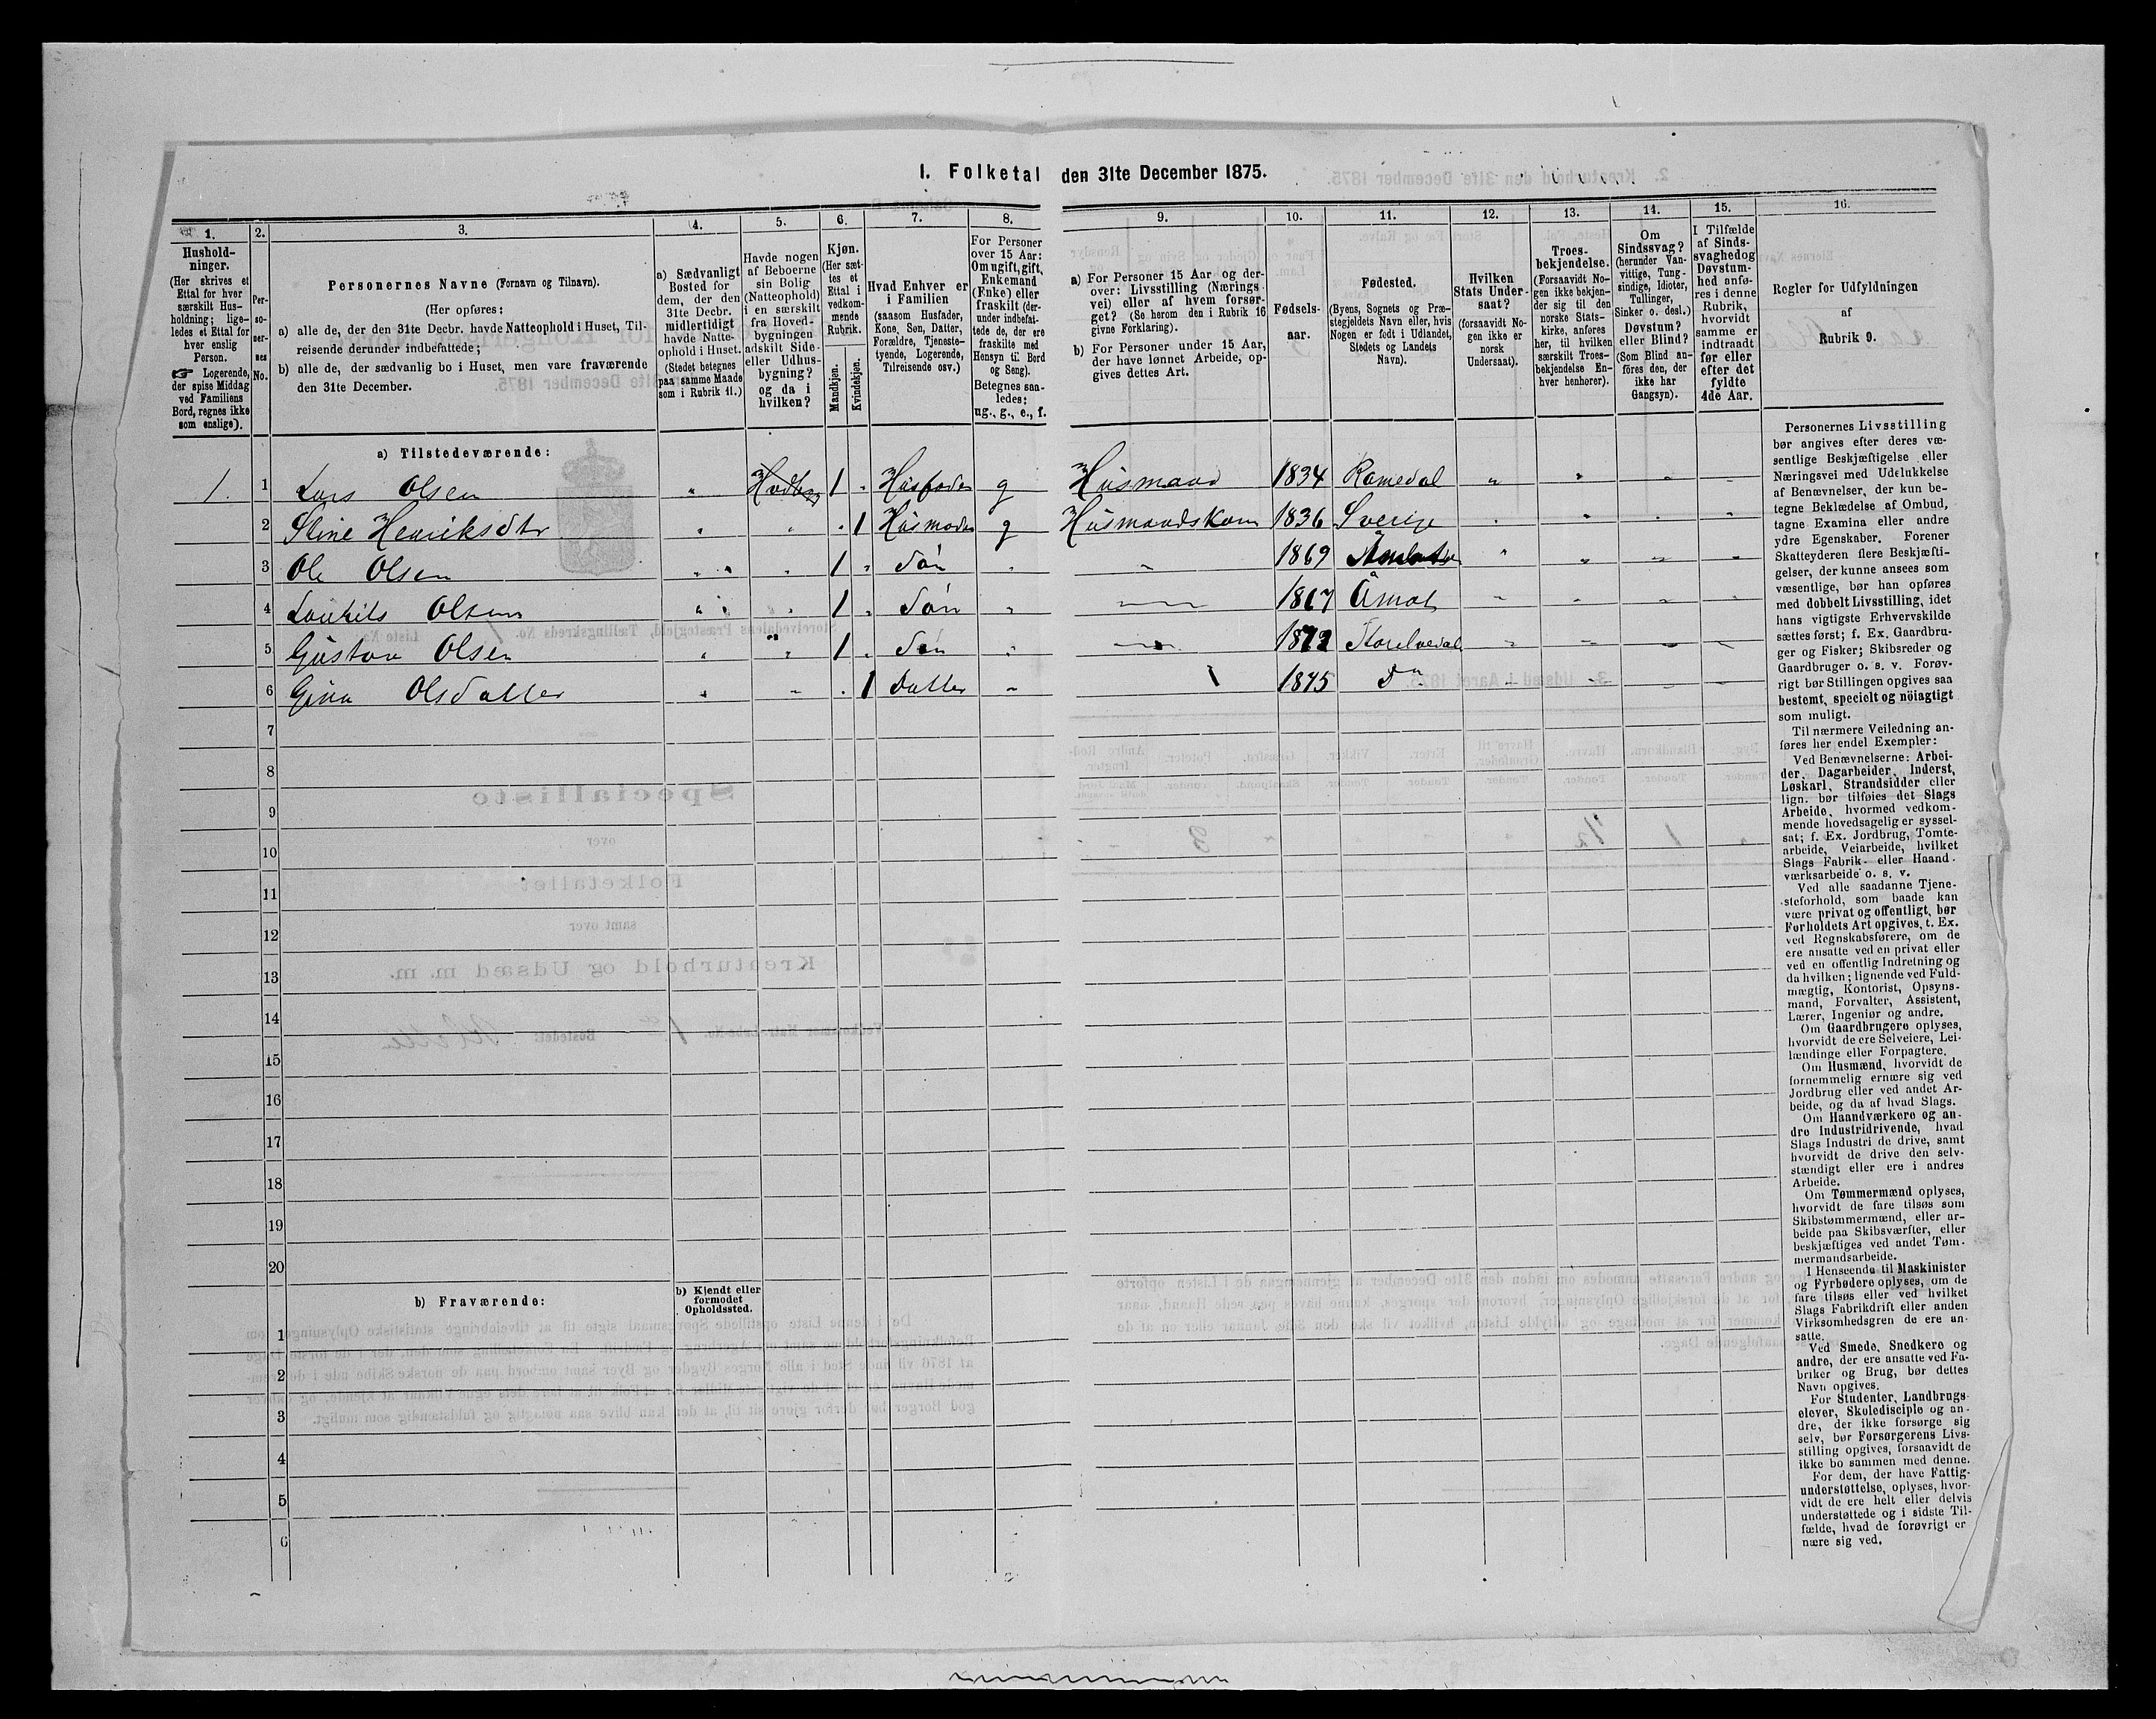 I. Folketal den 31te December 1875.
1. 2. 3. 4. 5. 6. 7. 8. 9. 10. 11. 12. 13. 14. 15. 16.
Hushold-
ninger.
(Her skrives et
Ettal for hver
særskilt Hus-
holdning; lige-
ledes et Ettal for
hver enslig
Person.
☞ Logerende,
der spise Middag
ved Familiens
Bord, regnes ikke
som enslige).
Per-
so-
ner-
nes
No.
Personernes Navne (Fornavn og Tilnavn).
(Her opføres:
a) alle de, der den 31te Decbr. havde Natteophold i Huset, Til-
reisende derunder indbefattede;
b) alle de, der sædvanlig bo i Huset, men vare fraværende
den 31te December.
a) Sædvanligt
Bosted for
dem, der den
31te Decbr.
midlertidigt
havde Natte-
ophold i Huset.
(Stedet betegnes
paa samme Maade
som i Rubrik 11.)
Havde nogen
af Beboerne
sin Bolig
(Natteophold)
i en særskilt
fra Hoved-
bygningen
adskilt Side-
eller Udhus-
bygning?
og da i
hvilken?
Kjøn.
(Her sæt-
tes et
Ettal i
vedkom-
mende
Rubrik.
Mandkjøn.
Kvindekjøn.
Hvad Enhver er
i Familien
(saasom Husfader,
Kone, Søn, Datter,
Forældre, Tjeneste-
tyende, Logerende,
Tilreisende osv.)
For Personer
over 15 Aar:
Om ugift, gift,
Enkemand
(Enke) eller
fraskilt (der-
under indbefat-
tede de, der ere
fraskilte med
Hensyn til Bord
og Seng).
Betegnes saa-
ledes:
ug., g., e., f.
a) For Personer 15 Aar og der-
over: Livsstilling (Nærings-
vei) eller af hvem forsør-
get? (Se herom den i Rubrik 16
givne Forklaring).
b) For Personer under 15 Aar,
der have lønnet Arbeide, op-
gives dettes Art.
Fødsels-
aar.
Fødested.
(Byens, Sognets og Præ-
stegjeldets Navn eller, hvis
Nogen er født i Udlandet,
Stedets og Landets
Navn).
Hvilken
Stats Under-
saat?
(forsaavidt No-
gen ikke er
norsk
Undersaat).
Troes-
bekjendelse.
(Forsaavidt No-
gen ikke bekjen-
der sig til den
norske Stats-
kirke, anføres
her, til hvilken
særskilt Troes-
bekjendelse En-
hver henhører).
Om
Sindssvag?
(herunder Van-
vittige, Tung-
sindige, Idioter,
Tullinger,
Sinker o. desl.)
Døvstum?
eller Blind?
(Som Blind an-
føres den, der
ikke har
Gangsyn).
I Tilfælde
af Sinds-
svaghed og
Døvstum-
hed anfø-
res i denne
Rubrik,
hvorvidt
samme er
indtraadt
før eller
efter det
fyldte
4de Aar.
Regler for Udfyldningen
af
Rubrik 9.
a) Tilstedeværende:
1. 1 Lars Olsen " 1 " Husfader g Husmand 1834 Romedal " " " "
2 Stine Henriksdtr " " " 1 Husmoder g Husmandskone 1836 Sverige " " " "
3 Ole Olsen " " 1 " Søn " " 1869 " " " "
4 Olsen " " 1 " Søn " " 1867 Åmot " " " "
5 Gustav Olsen " " 1 " Søn " " Storelvedal " " " "
6 Gina Olsdatter " " " 1 Datter " 1875 Do " " " "
7
8
9
10
11
12
13
14
15
16
17
18
19
20
b) Fraværende:
b) Kjendt eller
formodet
Opholdssted.
1
2
3
4
5
6
Personernes Livsstilling
bør angives efter deres væ-
sentlige Beskjæftigelse eller
Næringsvei med Udelukkelse
af Benævnelser, der kun be-
tegne Beklædelse af Ombud,
tagne Examina eller andre
ydre Egenskaber. Forener
Skatteyderen flere Beskjæfti-
gelser, der kunne ansees som
væsentlige, bør han opføres
med dobbelt Livsstilling, idet
hans vigtigste Erhvervskilde
sættes først; f. Ex. Gaardbru-
ger og Fisker; Skibsreder og
Gaardbruger o. s. v. Forøv-
rigt bør Stillingen opgives saa
bestemt, specielt og nöiagtigt
som muligt.
Til nærmere Veiledning an-
føres her endel Exempler:
Ved Benævnelserne: Arbei-
der, Dagarbeider, Inderst,
Løskarl, Strandsidder eller
lign. bør tilføies det Slags
Arbeide, hvormed vedkom-
mende hovedsagelig er syssel-
sat; f. Ex. Jordbrug, Tomte-
arbeide, Veiarbeide, hvilket
Slags Fabrik- eller Haand-
værksarbeide o. s. v.
Ved alle saadanne Tjene-
steforhold, som baade kan
være privat og offentligt, bør
Forholdets Art opgives, t. Ex.
ved Regnskabsførere, om de
ere ansatte ved en privat eller
ved en offentlig Indretning og
da hvilken; lignende ved Fuld-
mægtig, Kontorist, Opsyns-
mand, Forvalter, Assistent,
Lærer, Ingeniør og andre.
Om Gaardbrugere oplyses,
hvorvidt de ere Selveiere, Lei-
lændinge eller Forpagtere.
Om Husmænd, hvorvidt de
fornemmelig ernære sig ved
Jordbrug eller ved andet Ar-
beide, og da af hvad Slags.
Om Haandværkere og an-
dre Industridrivende, hvad
Slags Industri de drive, samt
hvorvidt de drive den selv-
stændigt eller ere i andres
Arbeide.
Om Tømmermænd oplyses,
hvorvidt de fare tilsøs som
Skibstømmermænd, eller ar-
beide paa Skibsværfter, eller
beskjæftiges ved andet Tøm-
mermandsarbeide.
I Henseende til Maskinister
og Fyrbødere oplyses, om de
fare tilsøs eller ved hvilket
Slags Fabrikdrift eller anden
Virksomhedsgren de ere an-
satte.
Ved Smede, Snedkere og
andre, der ere ansatte ved Fa-
briker og Brug, bør dettes
Navn opgives.
For Studenter, Landbrugs-
elever, Skoledisciple og an-
dre, der ikke forsørge sig
selv, bør Forsørgerens Livs-
stilling opgives, forsaavidt de
ikke bo sammen med denne.
For dem, der have Fattig-
understøttelse, oplyses, hvor-
vidt de ere helt eller delvis
understøttede og i sidste Til-
fælde, hvad de forøvrigt er
nære sig ved.